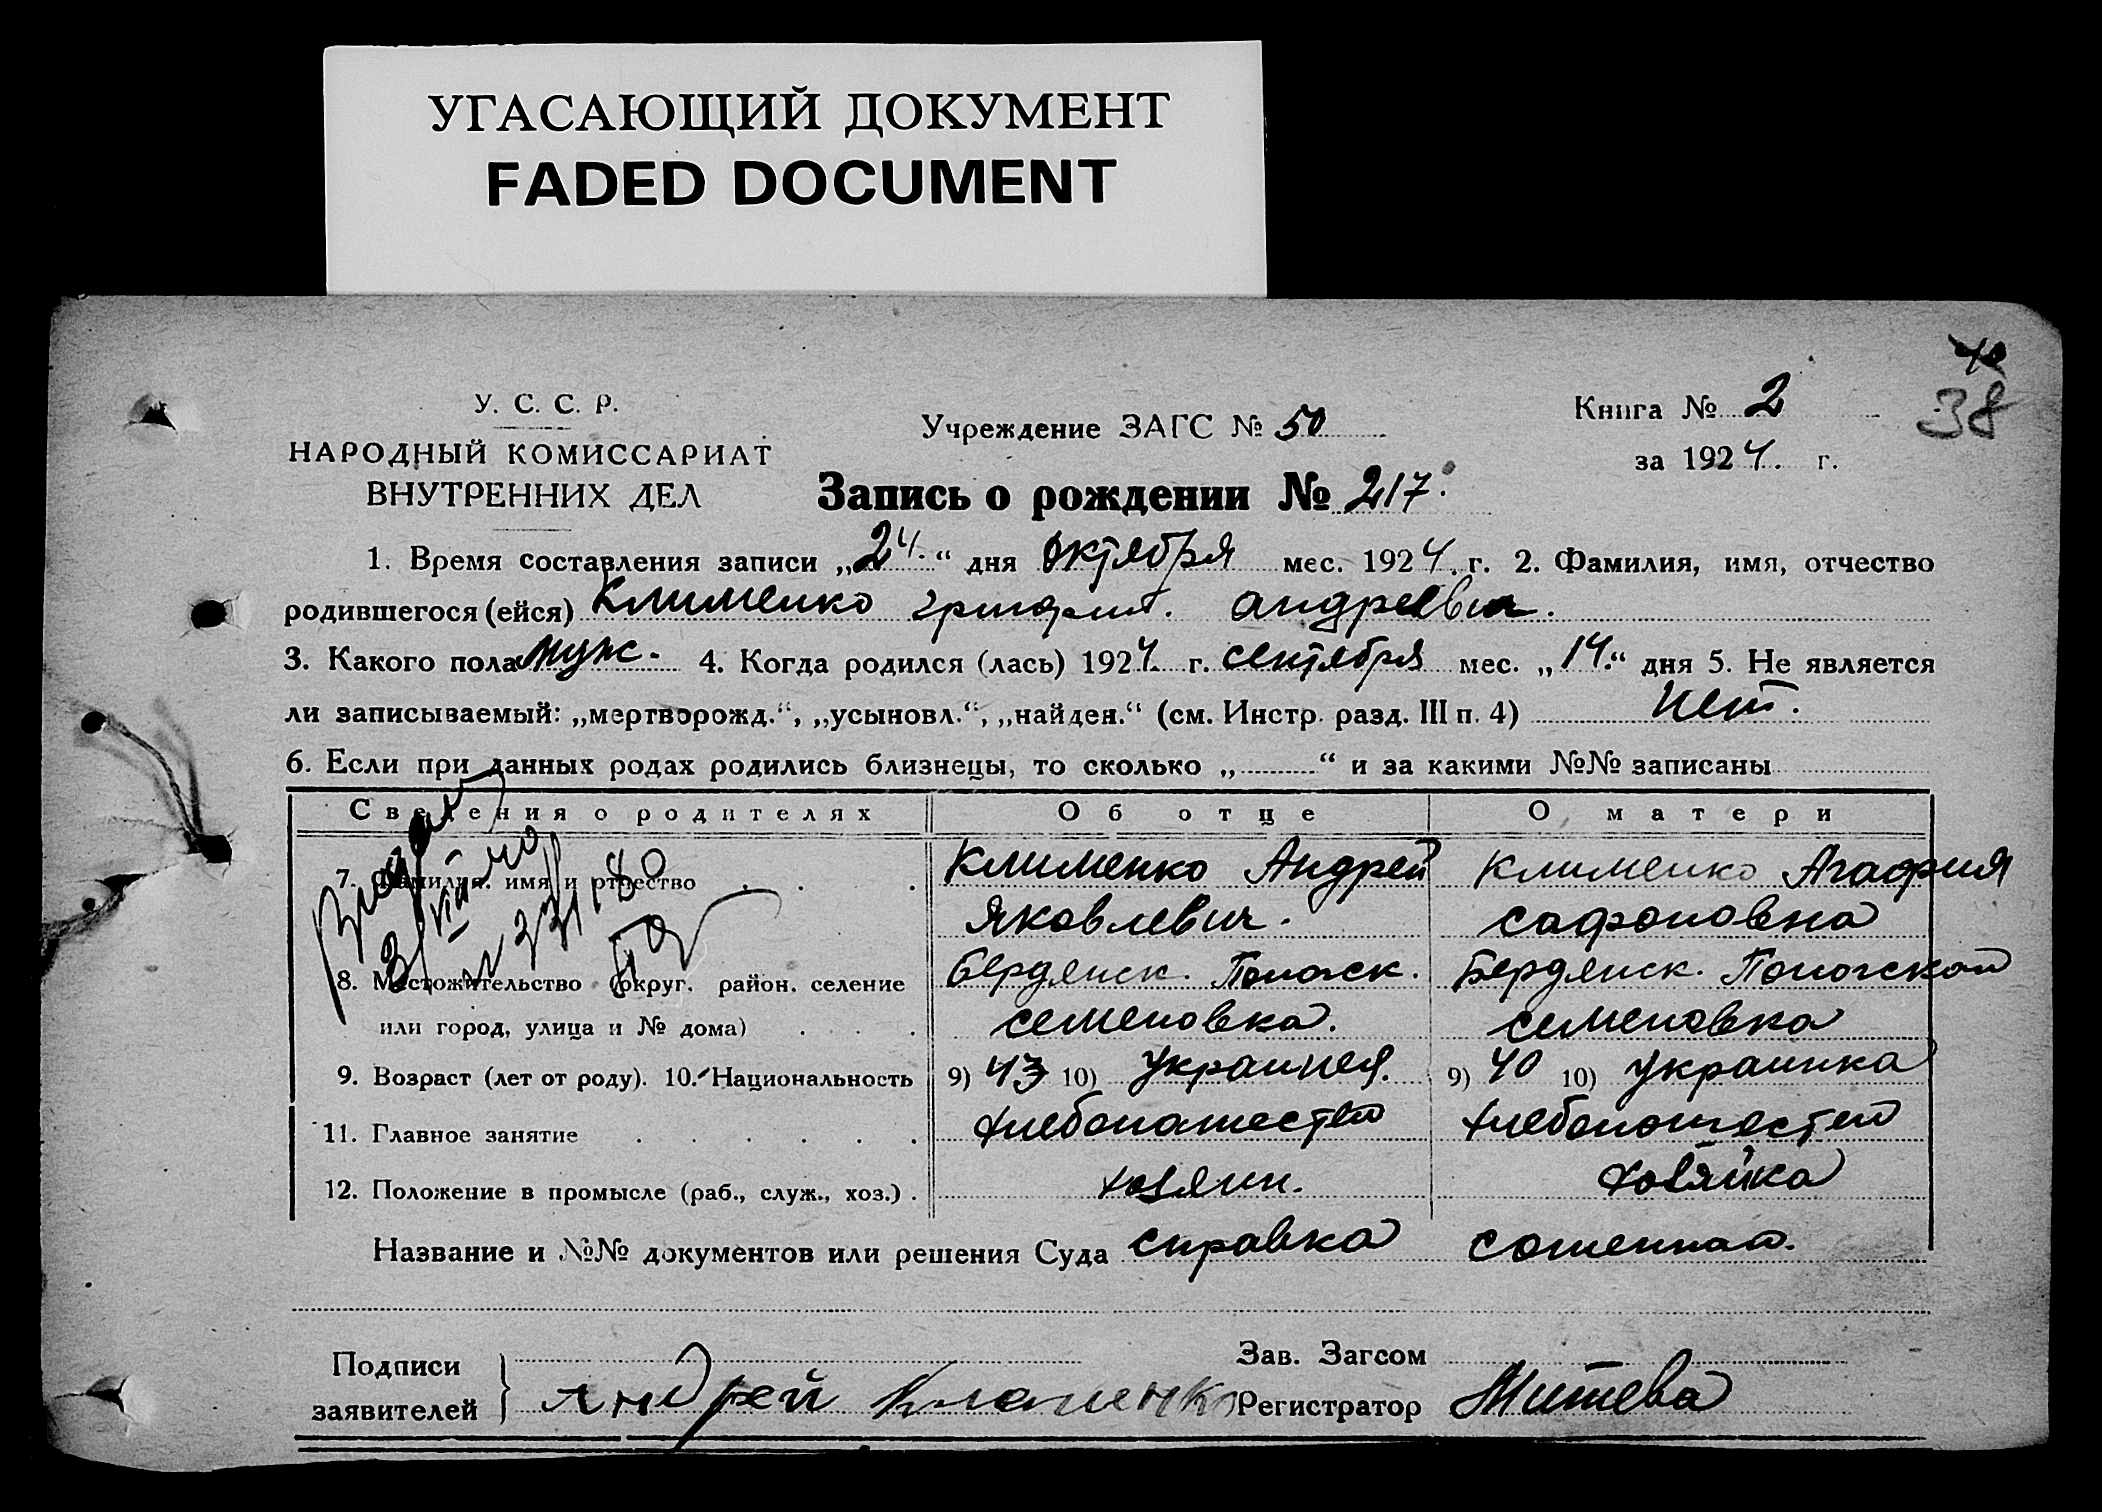 УГАСАЮЩИЙ ДОКУМЕНТ
FADED DOCUMENT
38
У. С. С. Р.
НАРОДНЫЙ КОМИССАРИАТ
ВНУТРЕННИХ ДЕЛ
Учреждение ЗАГС № 50
Книга № 2
за 1924. г.
Запись о рождении № 217.
1. Время составления записи „24.“ дня Октября мес. 1924. г. 2. Фамилия, имя, отчество
родившегося (ейся) Клименко Андреевич.
3. Какого пола муж. 4. Когда родился (лась) 1924. г. сентября мес. „14.“ дня 5. Не является
ли записываемый: „мертворожд.“, „усыновл.“, „найден.“ (см. Инстр. разд. III п. 4) Нет.
6. Если при данных родах родились близнецы, то сколько „ “ и за какими №№ записаны
Сведения о родителях Об отце О матери
7. Фамилия, имя и отчество Клименко Андрей Клименко Агафия
Яковлевич. сафоновна
8. Местожительство (округ, район, селение Бердянск. Пологск. Бердянск. Пологской
или город, улица и № дома) семеновка. семеновка
9. Возраст (лет от роду). 10. Национальность 9) 43 10) 9) 40 10) Украинка
11. Главное занятие хлебопашество хлебопашество
12. Положение в промысле (раб., служ., хоз.) . хозяин. хозяйка
Название и №№ документов или решения Суда справка
Подписи
заявителей
Андрей Клименко
Зав. Загсом
Регистратор